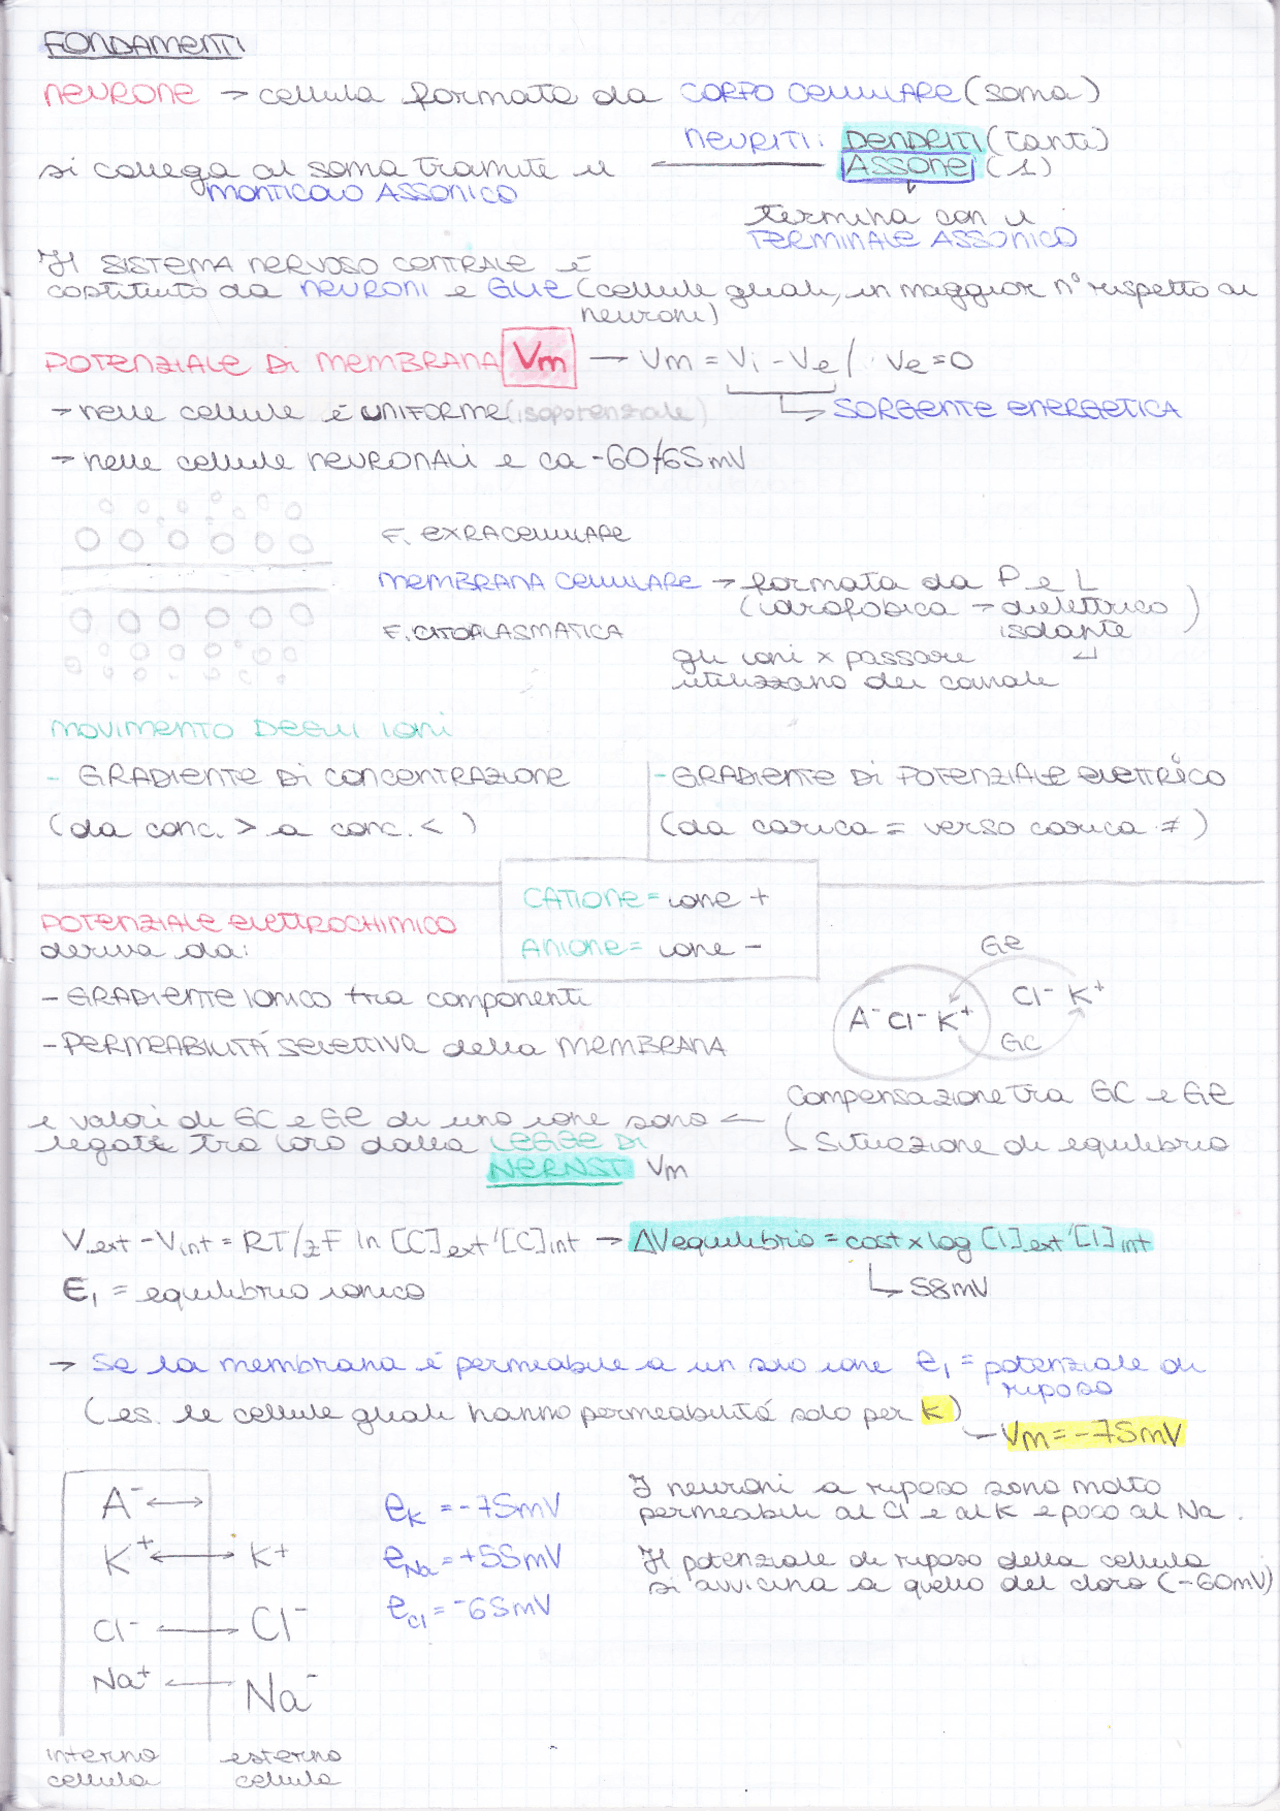 FONDAMENTI
NEURONE → cellula formata da CORPO CELLULARE (soma)
NEURITI: DENDRITI (tanti)
si collega al soma tramite il ← ASSONE (1)
MONTICOLO ASSONICO
termina con il
TERMINALE ASSONICO
Il SISTEMA NERVOSO CENTRALE é
costituito da NEURONI e GLIE (cellule gliali, in maggior n° rispetto ai
neuroni)
POTENZIALE DI MEMBRANA Vm → Vm = Vi - Ve / Ve=0
→ nelle cellule é UNIFORME (isopotenziale) → SORGENTE ENERGETICA
→ nelle cellule NEURONALI e ca -60/65mV
F. EXRACELLULARE
MEMBRANA CELLULARE → formata da P e L
(idrofobica → dielettrico
isolante)
F. CITOPLASMATICA
gli ioni x passare
utilizzano dei canale
MOVIMENTO DEGLI IONI
- GRADIENTE DI CONCENTRAZIONE
(da conc. > a conc. < )
- GRADIENTE DI POTENZIALE ELETTRICO
(da carica = verso carica ≠)
CATIONE = ione +
ANIONE = ione -
POTENZIALE ELETTROCHIMICO
deriva da:
- GRADIENTE IONICO tra componenti
- PERMEABILITÁ SELETTIVA della MEMBRANA
GE
Cl⁻ K⁺
A⁻ Cl⁻ K⁺
GC
Compensazione tra GC e GE
Situazione di equilibrio
i valori di GC e GE di uno ione sono ←
legati tra loro dalla LEGGE DI
NERNST Vm
V.ext - Vint = RT/zF ln [C]ext/[C]int → ΔVequilibrio = cost x log [I]ext/[I]int
58mV
E₁ = equilibrio ionico
→ Se la membrana é permeabile a un solo ione e₁ = potenziale di
riposo
(es. le cellule gliali hanno permeabilitá solo per K)
Vm = -75mV
A⁻ ↔
K⁺ ↔ K+
Cl⁻ → Cl⁻
Na⁺ ← Na⁻
interno
cellula
esterno
cellula
eK = -75mV
eNa = +55mV
eCl = -65mV
I neuroni a riposo sono molto
permeabili al Cl e al K e poco al Na.
Il potenziale di riposo della cellula
si avvicina a quello del cloro (-60mV)